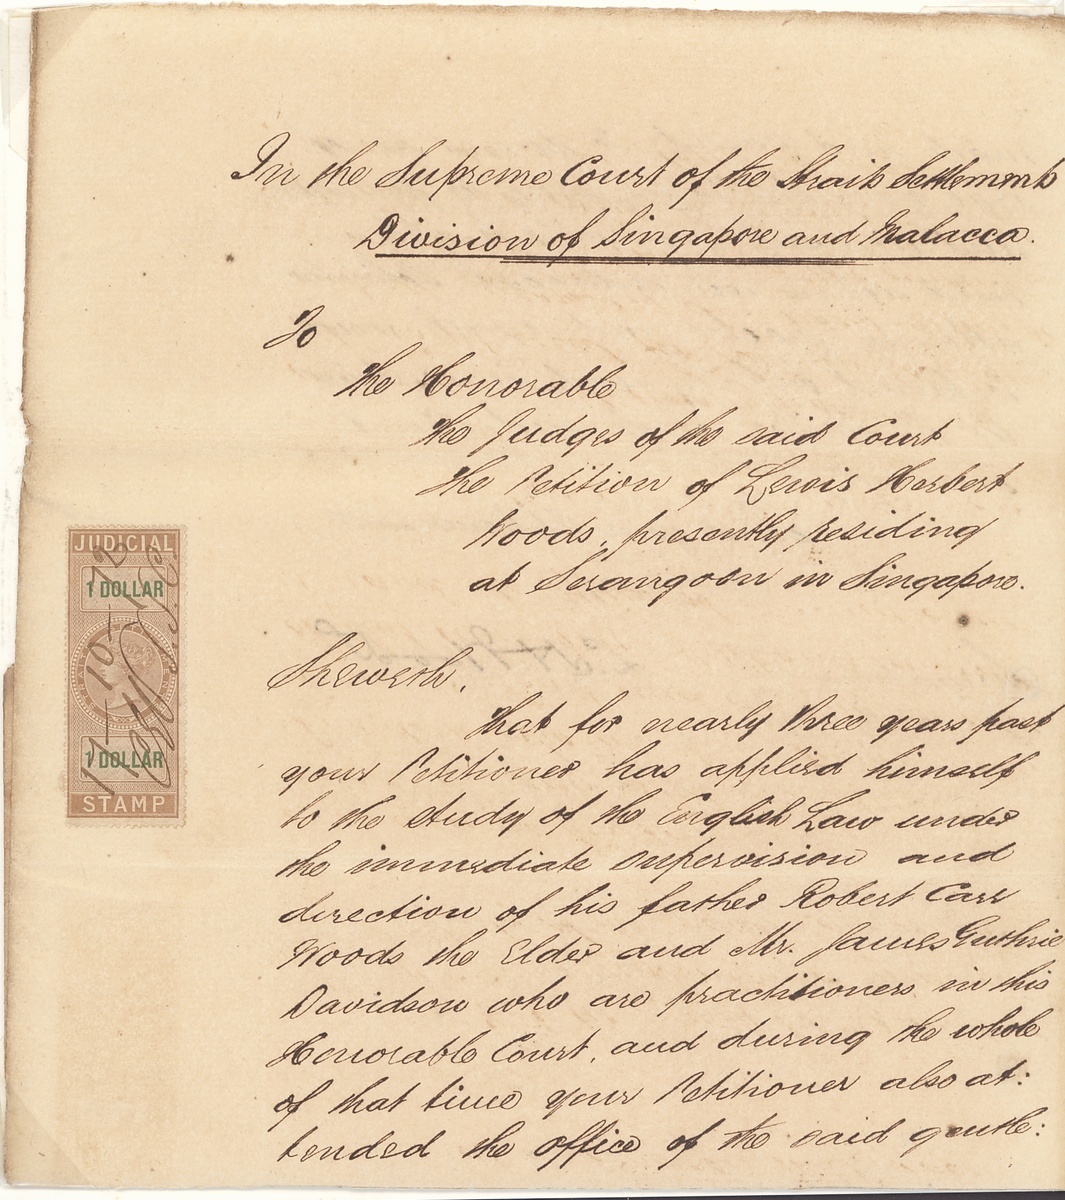 In the Supreme Court of the Straits Settlements
Division of Singapore and Malacca.
To
The Honorable
The Judges of the said Court
The Petition of Lewis Herbert
Woods, presently residing
at Serangoon in Singapore.
JUDICIAL
1 DOLLAR
1 DOLLAR
STAMP
Sheweth,
That for nearly three years past
your Petitioner has applied himself
to the study of the English Law under
the immediate supervision and
direction of his father Robert Carr
Woods the Elder and Mr. James Guthrie
Davidson who are practitioners in this
Honorable Court, and during the whole
of that time your Petitioner also at:
tended the office of the said gentle: